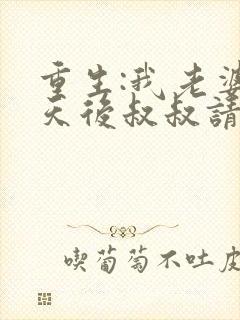 重生:我老婆
天後叔叔請
喫葡萄不吐皮